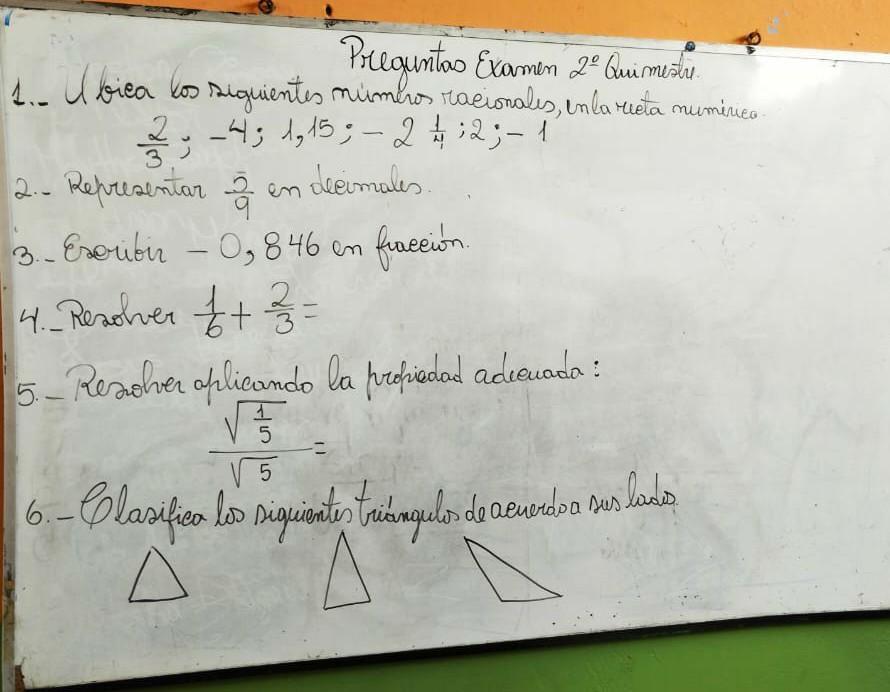 Preguntas Examen 2º Quimestre.
1.- Ubica los siguientes números racionales, en la recta numérica.
2/3 ; -4 ; 1,15 ; - 2 1/4 ; 2 ; - 1
2.- Representar 5/9 en decimales.
3.- Escribir - 0,846 en fracción.
4.- Resolver 1/6 + 2/3 =
5.- Resolver aplicando la propiedad adecuada :
√(1/5) / √5 =
6.- Clasifica los siguientes triángulos de acuerdo a sus lados.